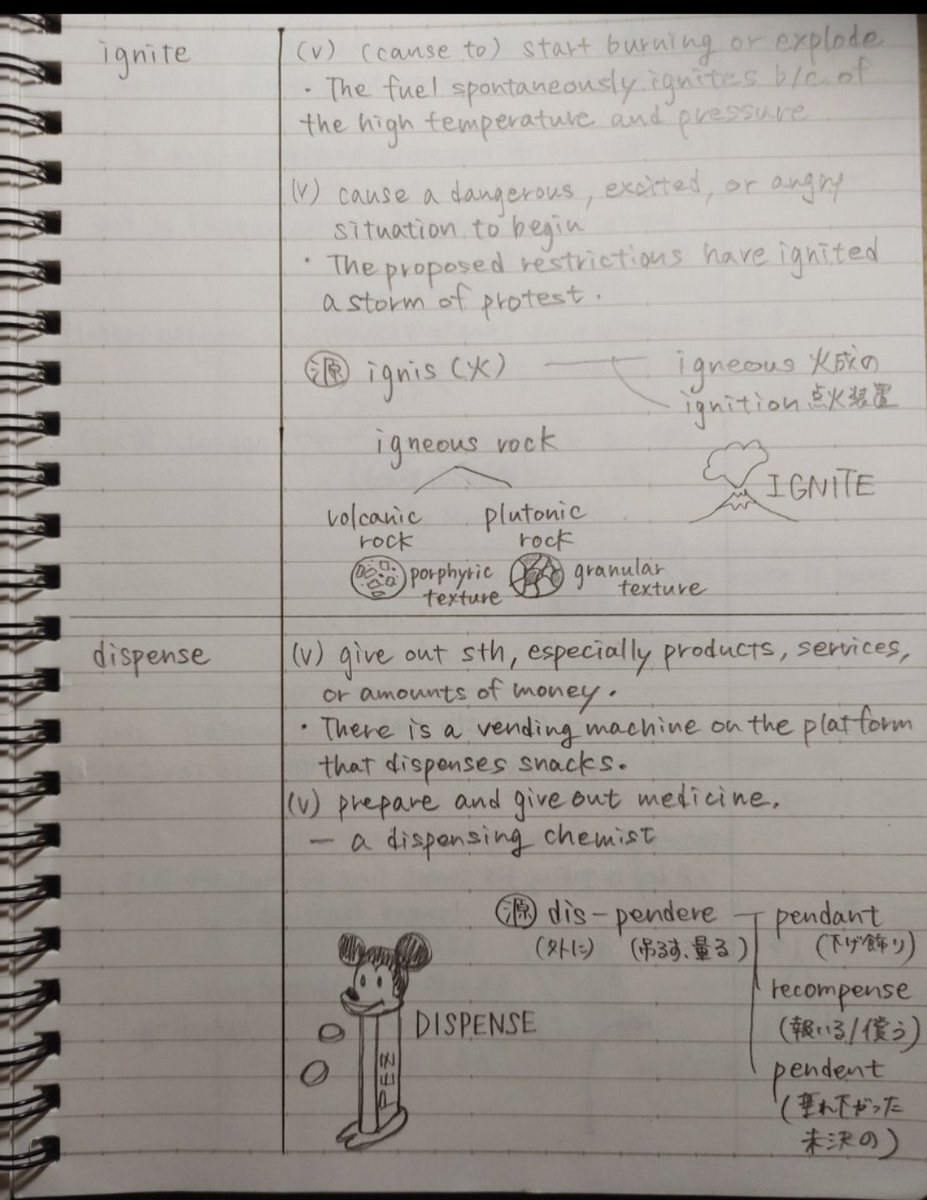 ignite
(v) (cause to) start burning or explode
· The fuel spontaneously ignites b/c of
the high temperature and pressure
(v) cause a dangerous, excited, or angry
situation to begin
· The proposed restrictions have ignited
a storm of protest.
源 ignis (火)
igneous 火成の
ignition 点火装置
igneous rock
volcanic
rock
plutonic
rock
IGNITE
porphyric
texture
granular
texture
dispense
(v) give out sth, especially products, services,
or amounts of money.
· There is a vending machine on the platform
that dispenses snacks.
(v) prepare and give out medicine.
— a dispensing chemist
源 dis-pendere
(外に) (吊るす、量る)
pendant
(下げ飾り)
recompense
(報いる/償う)
pendent
(垂れ下がった
未決の)
DISPENSE
PEZ